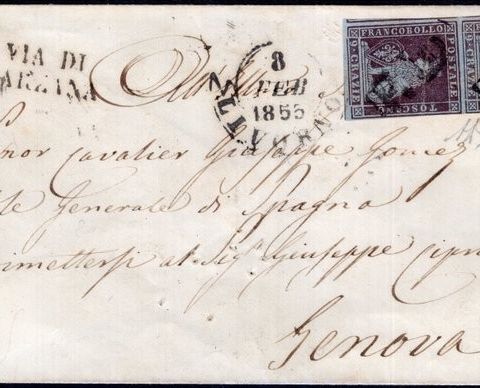 VIA DI
ARZANA
8
FEB
1855
LIVORNO
FRANCOBOLLO
POSTALE
TOSCANO
9 CRAZIE
P.D
9 CRAZIE
nor Cavalier Giuseppe Gomez
le Generale di Spagna
rimettersi al Sigr Giuseppe Cipr
Genova